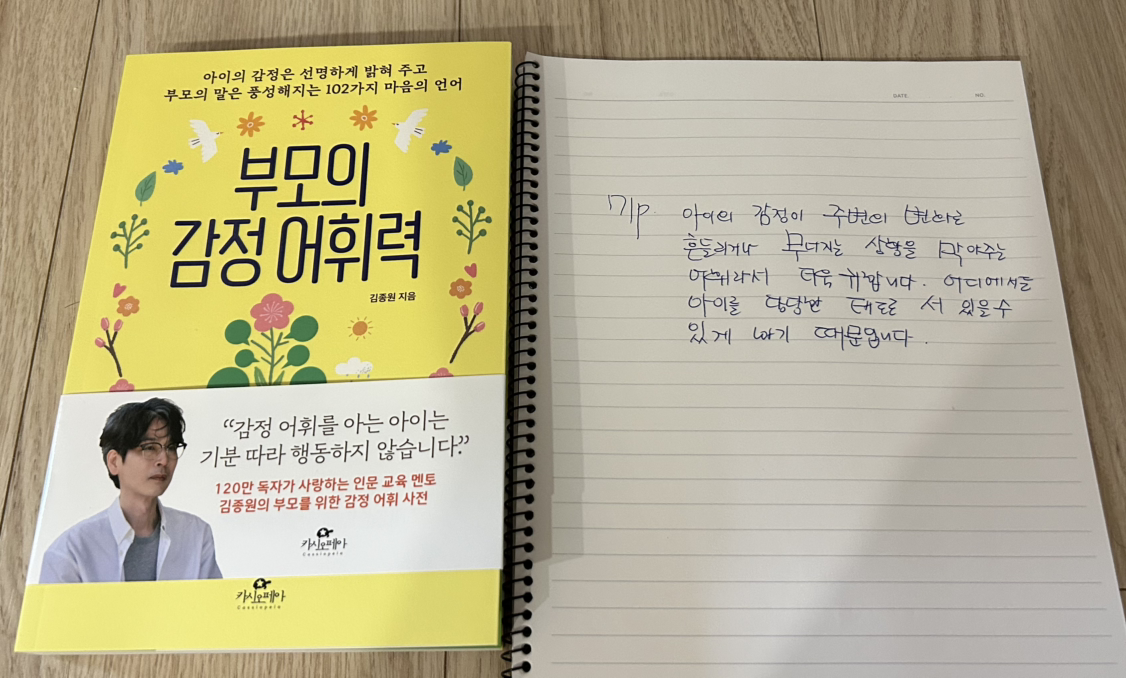 아이의 감정은 선명하게 밝혀 주고
부모의 말은 풍성해지는 102가지 마음의 언어
부모의
감정 어휘력
김종원 지음
“감정 어휘를 아는 아이는
기분 따라 행동하지 않습니다.”
120만 독자가 사랑하는 인문 교육 멘토
김종원의 부모를 위한 감정 어휘 사전
카시오페아
Cassiopeia
카시오페아
Cassiopeia
DATE NO.
71p. 아이의 감정이 주변의 변화로
흔들리거나 무너지는 상황을 막아주는
어휘라서 더욱 귀합니다. 어디에서든
아이를 당당한 태도로 서 있을 수
있게 하기 때문입니다.